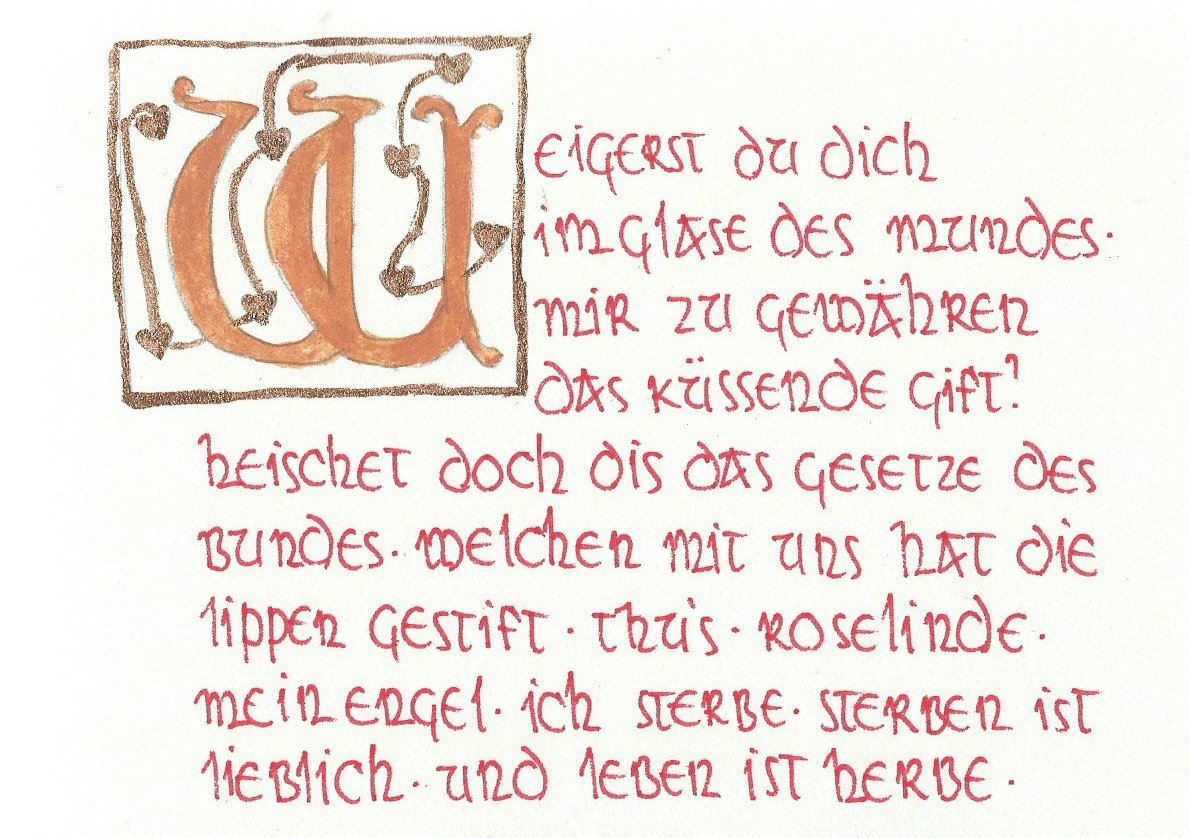 Weigerst du dich
im Glase des Mundes·
mir zu gewähren
das küssende Gift?
heischet doch dis das Gesetze des
Bundes· welchen mit uns hat die
Lippen gestift· thu's· Roselinde·
mein Engel· ich sterbe· sterben ist
lieblich· und leben ist herbe·